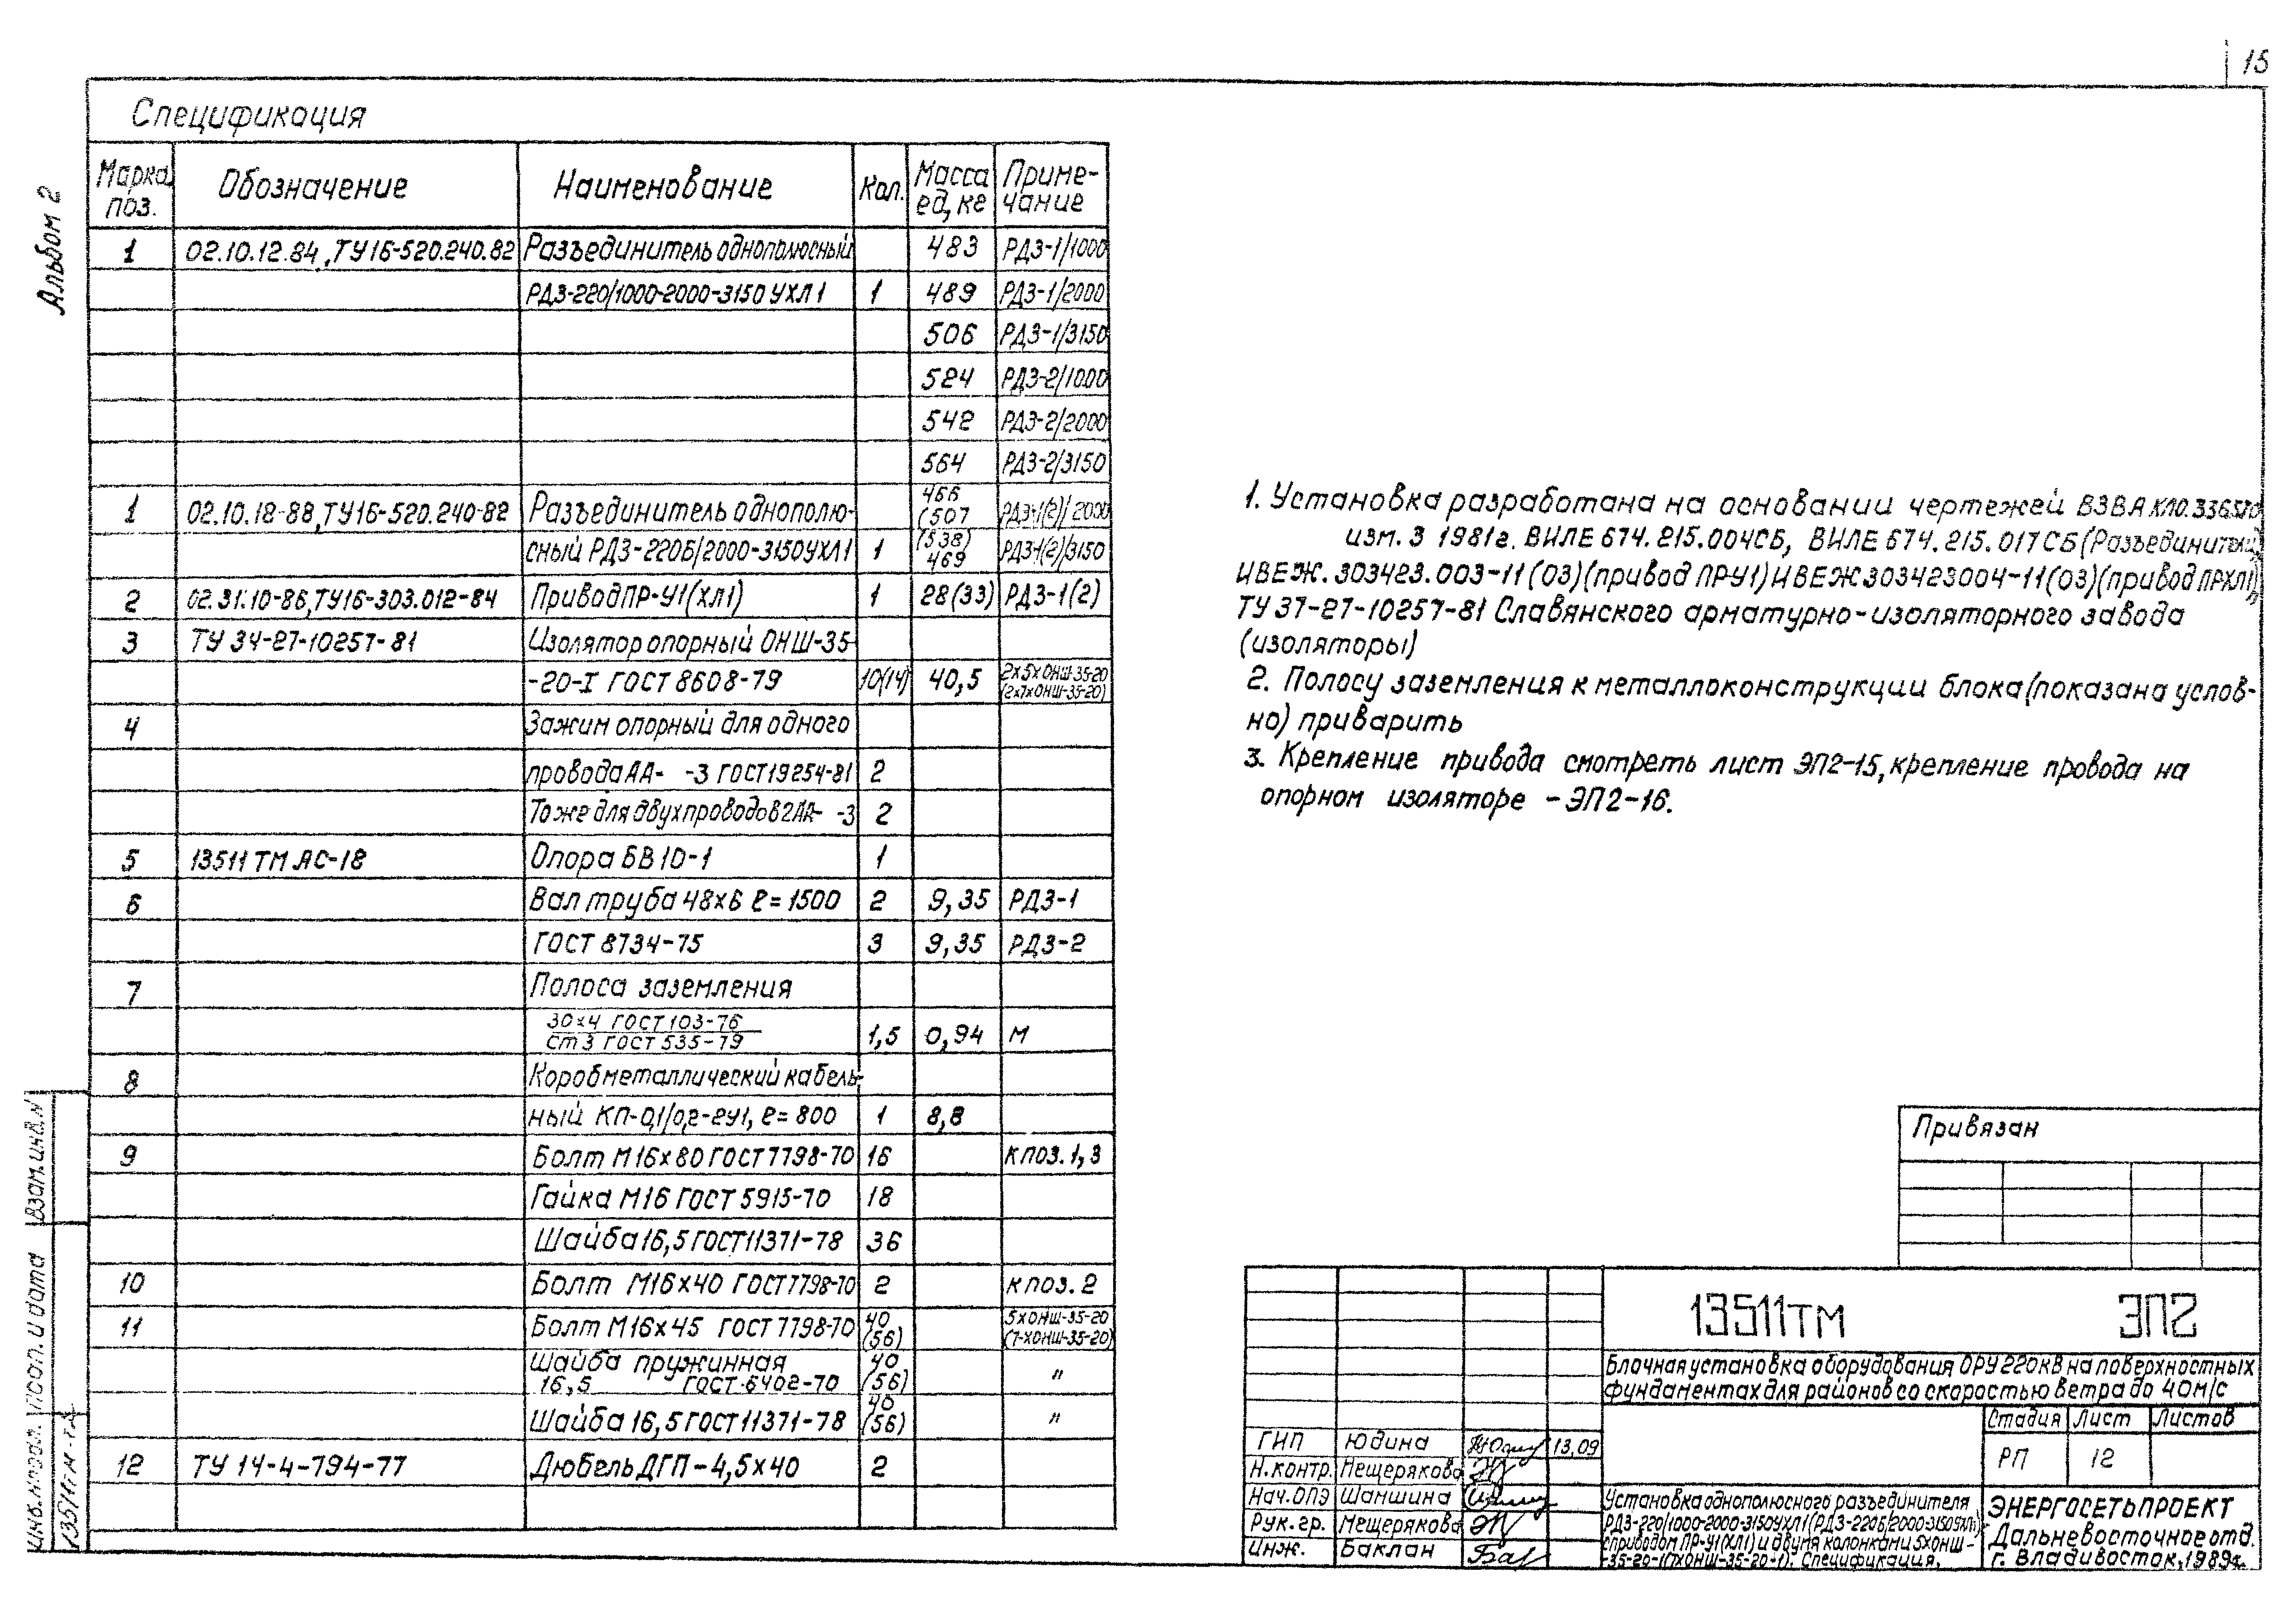 15
Альбом 2
Спецификация
Марка поз. Обозначение Наименование Кол. Масса ед, кг Приме-чание
1 02.10.12.84, ТУ16-520.240.82 Разъединитель однополюсный 483 РДЗ-1/1000
РДЗ-220/1000-2000-3150 УХЛ1 1 489 РДЗ-1/2000
506 РДЗ-1/3150
524 РДЗ-2/1000
542 РДЗ-2/2000
564 РДЗ-2/3150
1 02.10.18-88, ТУ16-520.240-82 Разъединитель однополю- 466 (507 РДЗ-1(2)/2000
сный РДЗ-220Б/2000-3150УХЛ1 1 (538) 469 РДЗ-1(2)/3150
2 02.31.10-86, ТУ16-303.012-84 Привод ПР-У1(ХЛ1) 1 28(33) РДЗ-1(2)
3 ТУ 34-27-10257-81 Изолятор опорный ОНШ-35-
-20-I ГОСТ 8608-79 10(14) 40,5 2х5хОНШ-35-20 (2х7хОНШ-35-20)
4 Зажим опорный для одного
провода АА- -3 ГОСТ 19254-81 2
То же для двух проводов 2АА- -3 2
5 13511ТМ АС-18 Опора БВ10-1 1
6 Вал труба 48х6 ℓ=1500 2 9,35 РДЗ-1
ГОСТ 8734-75 3 9,35 РДЗ-2
7 Полоса заземления
30х4 ГОСТ 103-76
Ст3 ГОСТ 535-79 1,5 0,94 М
8 Короб металлический кабель-
ный КП-0,1/0,2-2У1, ℓ=800 1 8,8
9 Болт М16х80 ГОСТ 7798-70 16 К поз. 1,3
Гайка М16 ГОСТ 5915-70 18
Шайба 16,5 ГОСТ 11371-78 36
10 Болт М16х40 ГОСТ 7798-70 2 к поз. 2
11 Болт М16х45 ГОСТ 7798-70 40 (56) 5хОНШ-35-20 (7-хОНШ-35-20)
Шайба пружинная 16,5 ГОСТ 6402-70 40 (56) "
Шайба 16,5 ГОСТ 11371-78 40 (56) "
12 ТУ 14-4-794-77 Дюбель ДГП-4,5х40 2
1. Установка разработана на основании чертежей ВЗВА
изм. 3 1981г. ВИЛЕ 674.215.004СБ, ВИЛЕ 674.215.017СБ (Разъединитель),
ИВЕЖ.303423.003-11(03)(привод ПРУ1) ИВЕЖ303423004-11(03)(привод ПРХЛ1),
ТУ 37-27-10257-81 Славянского арматурно-изоляторного завода
(изоляторы)
2. Полосу заземления к металлоконструкции блока (показана услов-
но) приварить
3. Крепление привода смотреть лист ЭП2-15, крепление провода на
опорном изоляторе - ЭП2-16.
Привязан
13511ТМ ЭП2
Блочная установка оборудования ОРУ 220кВ на поверхностных
фундаментах для районов со скоростью ветра до 40м/с
Стадия Лист Листов
РП 12
ГИП Юдина 13.09
Н.контр. Мещерякова
Нач.ОПЭ Шаншина
Рук.гр. Мещерякова
Инж. Баклан
Установка однополюсного разъединителя
РДЗ-220/1000-2000-3150УХЛ1 (РДЗ-220Б/2000-3150УХЛ1)
с приводом ПР-У1(ХЛ1) и двумя колонками 5хОНШ-
-35-20-1(7хОНШ-35-20-1). Спецификация.
ЭНЕРГОСЕТЬПРОЕКТ
Дальневосточное отд.
г. Владивосток, 1989г.
Взам.инв.N
Подп. и дата
Инв.N подл.
13511тм-т2